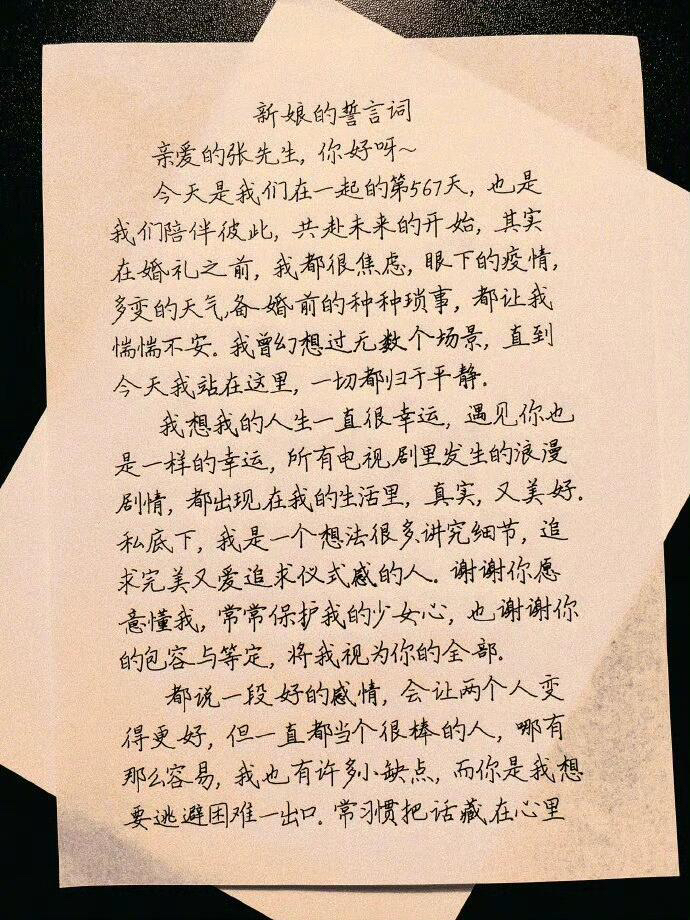 新娘的誓言词
亲爱的张先生，你好呀~
今天是我们在一起的第567天，也是
我们陪伴彼此，共赴未来的开始，其实
在婚礼之前，我都很焦虑，眼下的疫情，
多变的天气，备婚前的种种琐事，都让我
惴惴不安。我曾幻想过无数个场景，直到
今天我站在这里，一切都归于平静.
我想我的人生一直很幸运，遇见你也
是一样的幸运，所有电视剧里发生的浪漫
剧情，都出现在我的生活里，真实，又美好.
私底下，我是一个想法很多，讲究细节，追
求完美又爱追求仪式感的人.谢谢你愿
意懂我，常常保护我的少女心，也谢谢你
的包容与等定，将我视为你的全部.
都说一段好的感情，会让两个人变
得更好，但一直都当个很棒的人，哪有
那么容易，我也有许多小缺点，而你是我想
要逃避困难一出口.常习惯把话藏在心里